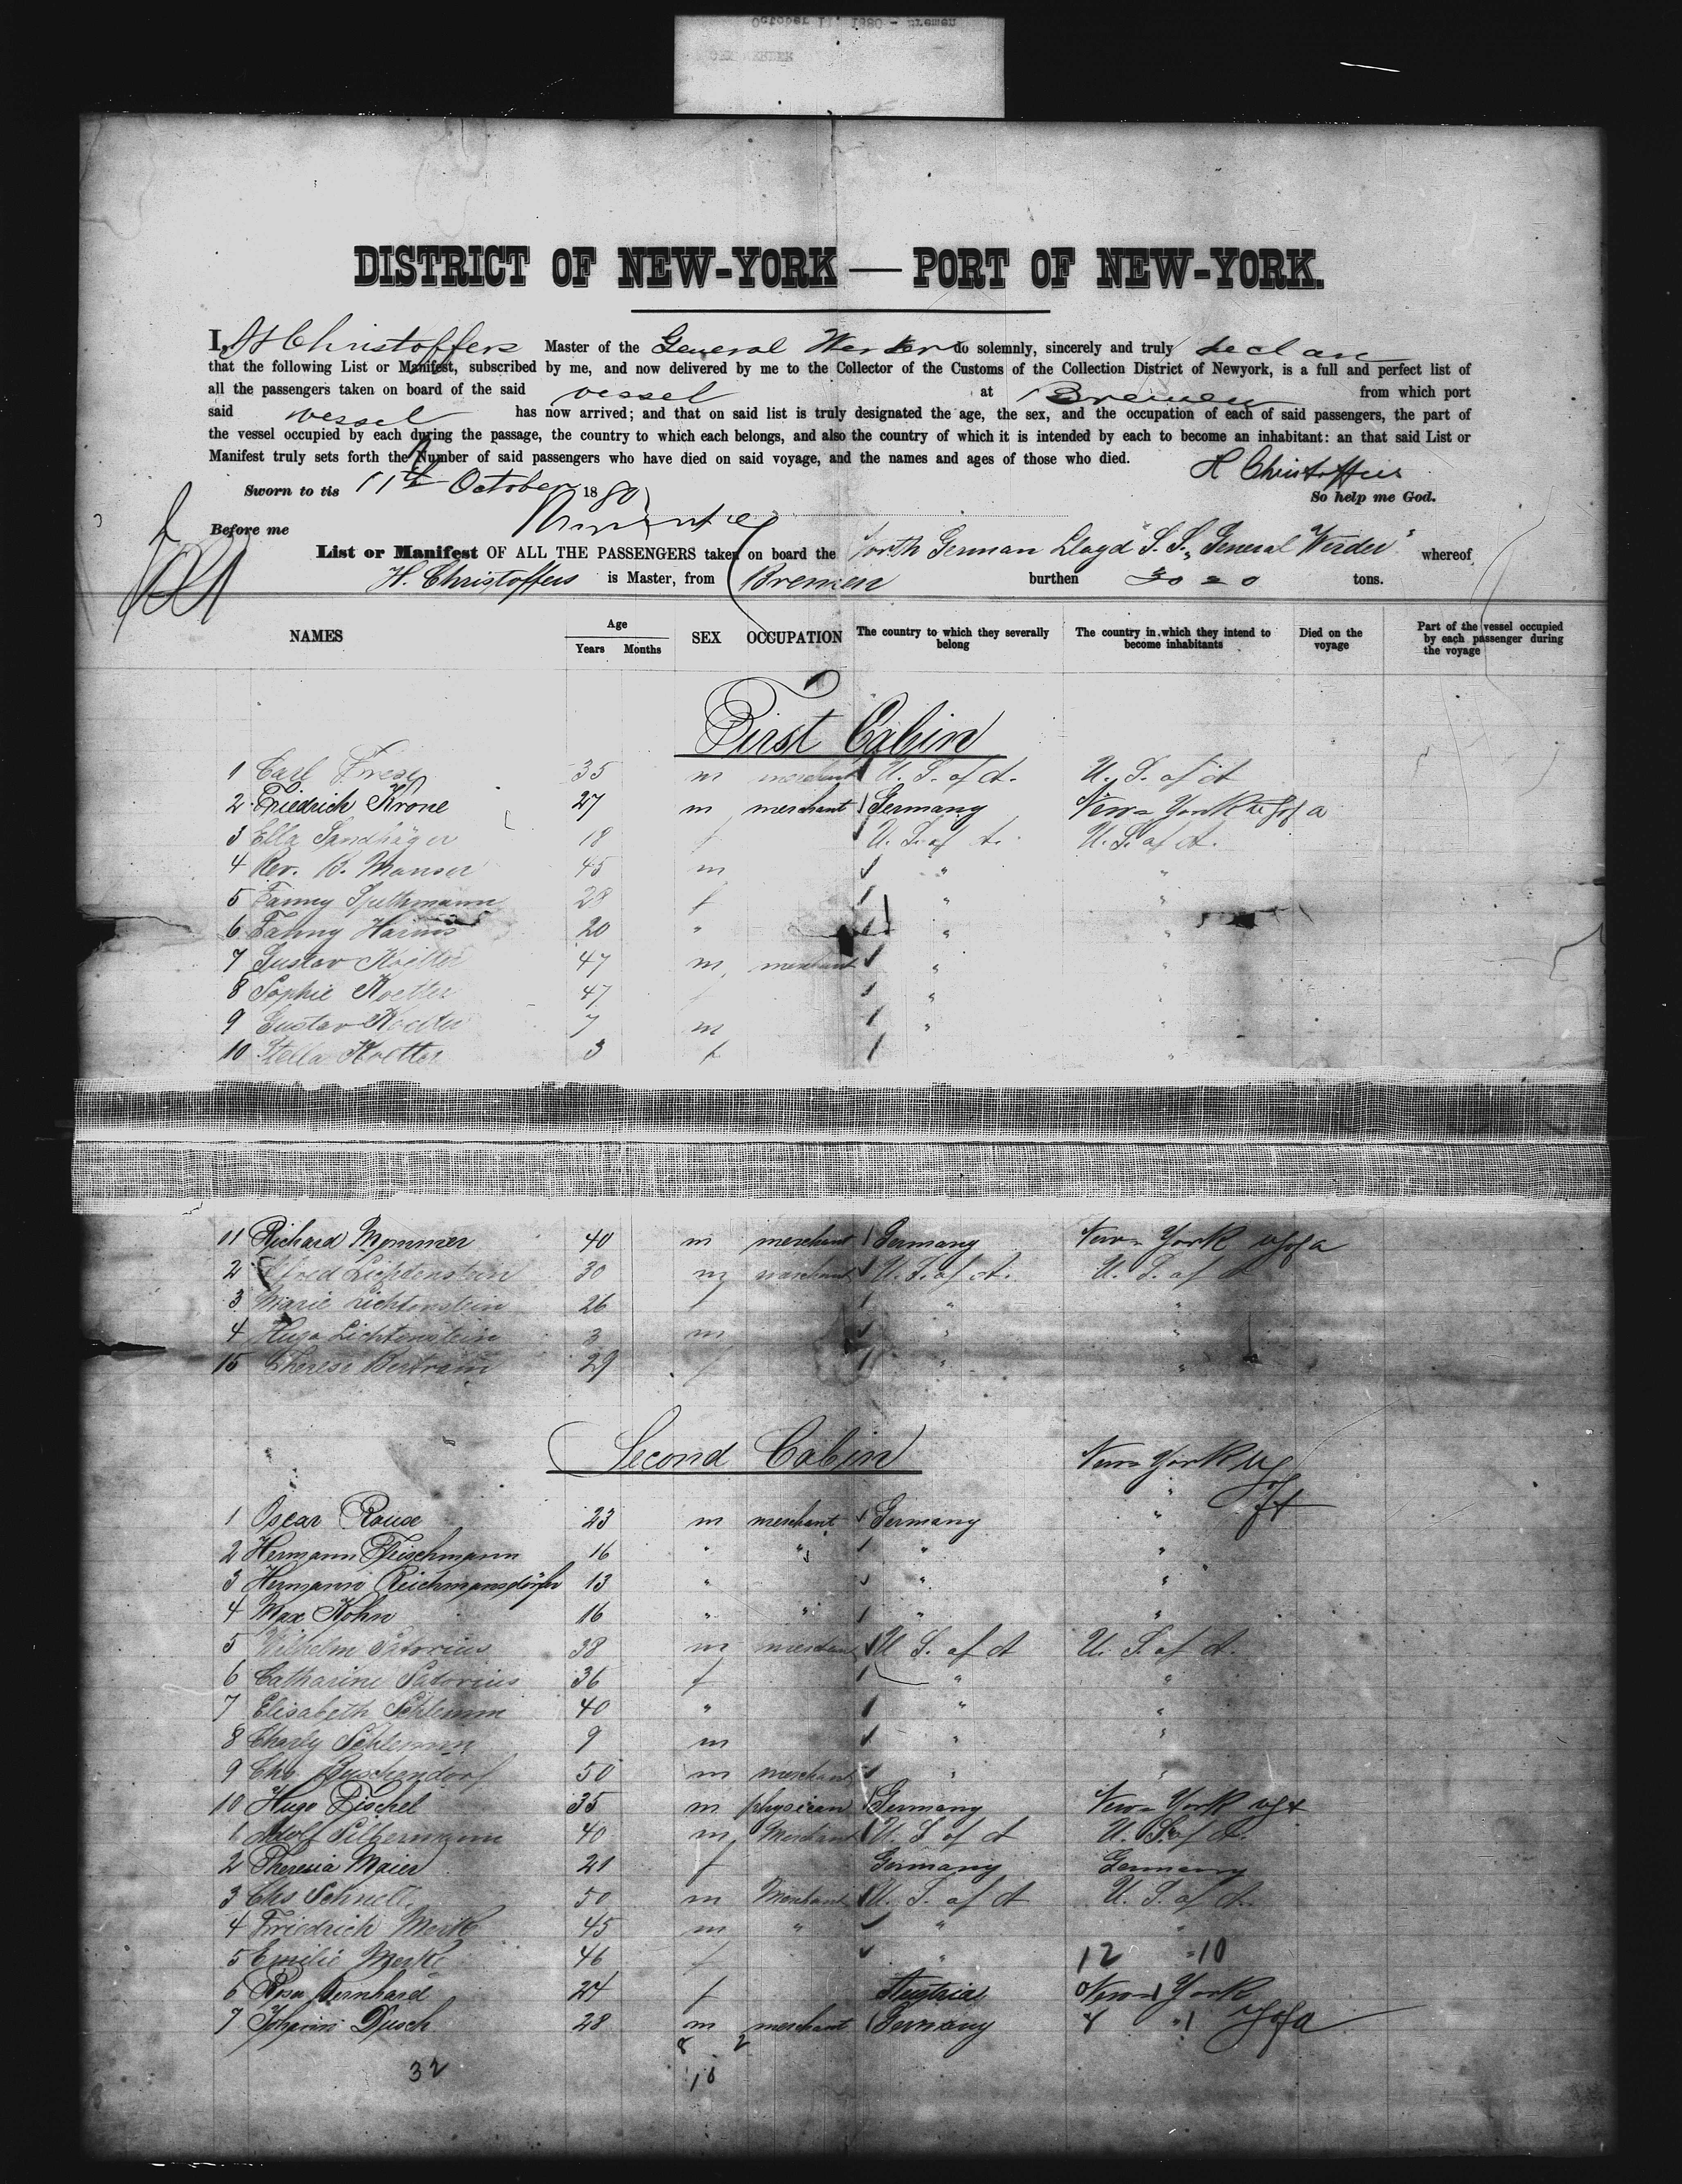 October 11, 1880 - Bremen
GEN WERDER
DISTRICT OF NEW-YORK — PORT OF NEW-YORK.
I, H Christoffers Master of the General Werder do solemnly, sincerely and truly declare
that the following List or Manifest, subscribed by me, and now delivered by me to the Collector of the Customs of the Collection District of Newyork, is a full and perfect list of
all the passengers taken on board of the said vessel at Bremen from which port
said vessel has now arrived; and that on said list is truly designated the age, the sex, and the occupation of each of said passengers, the part of
the vessel occupied by each during the passage, the country to which each belongs, and also the country of which it is intended by each to become an inhabitant: an that said List or
Manifest truly sets forth the Number of said passengers who have died on said voyage, and the names and ages of those who died.
H Christoffers
Sworn to tis 11th October 1880
So help me God.
Before me
List or Manifest OF ALL THE PASSENGERS taken on board the North German Lloyd S. S. "General Werder" whereof
H. Christoffers is Master, from Bremen burthen 3020 tons.
NAMES Age Years Months SEX OCCUPATION The country to which they severally belong The country in which they intend to become inhabitants Died on the voyage Part of the vessel occupied by each passenger during the voyage
First Cabin
1 Carl Frese 35 m merchant U. S. of A. U. S. of A
2 Friedrich Krone 27 m merchant Germany New-York U S of a
3 Ella Sandhäger 18 f U. S. of A. U. S. of A.
4 Rev. B. Manser 45 m " "
5 Fanny Spethmann 28 f " "
6 Fanny Harms 20 " " "
7 Gustav Koetter 47 m merchant " "
8 Sophie Koetter 47 f " "
9 Gustav Koetter 7 m " "
10 Stella Koetter 3 f "
11 Richard Mommer 40 m merchant Germany New-York U S of a
2 Alfred Lichtenstein 30 m merchant U. S. of A. U. S. of A
3 Marie Lichtenstein 26 f " "
4 Hugo Lichtenstein 3 m " "
15 Therese Bertram 29 f " "
Second Cabin New York U S
" of A
1 Oscar Rause 23 m merchant Germany "
2 Hermann Fleischmann 16 " " " "
3 Hermann Reichmansdörfer 13 " " "
4 Max Kohn 16 " " " "
5 Wilhelm Sartorius 38 m merchant U S. of A U. S. of A.
6 Catharine Sartorius 36 f " "
7 Elisabeth Schlemm 40 " " "
8 Charly Schlemm 9 m " "
9 Chs. 50 m merchant " "
10 Hugo Pischel 35 m physician Germany New-York
1 Adolf Silbermann 40 m Merchant U. S of A U. S. of A.
2 Theresia Maier 21 f Germany Germany
3 Chs Schnell 50 m Merchant U. S. of A U. S. of A.
4 Friedrich Merk 45 m " " "
5 Emilie Merk 46 f " 12 10
6 Rosa Bernhard 24 f Austria New York
7 Johann Dusch 28 m merchant Germany 8 "1 S of A
8 2
32 10